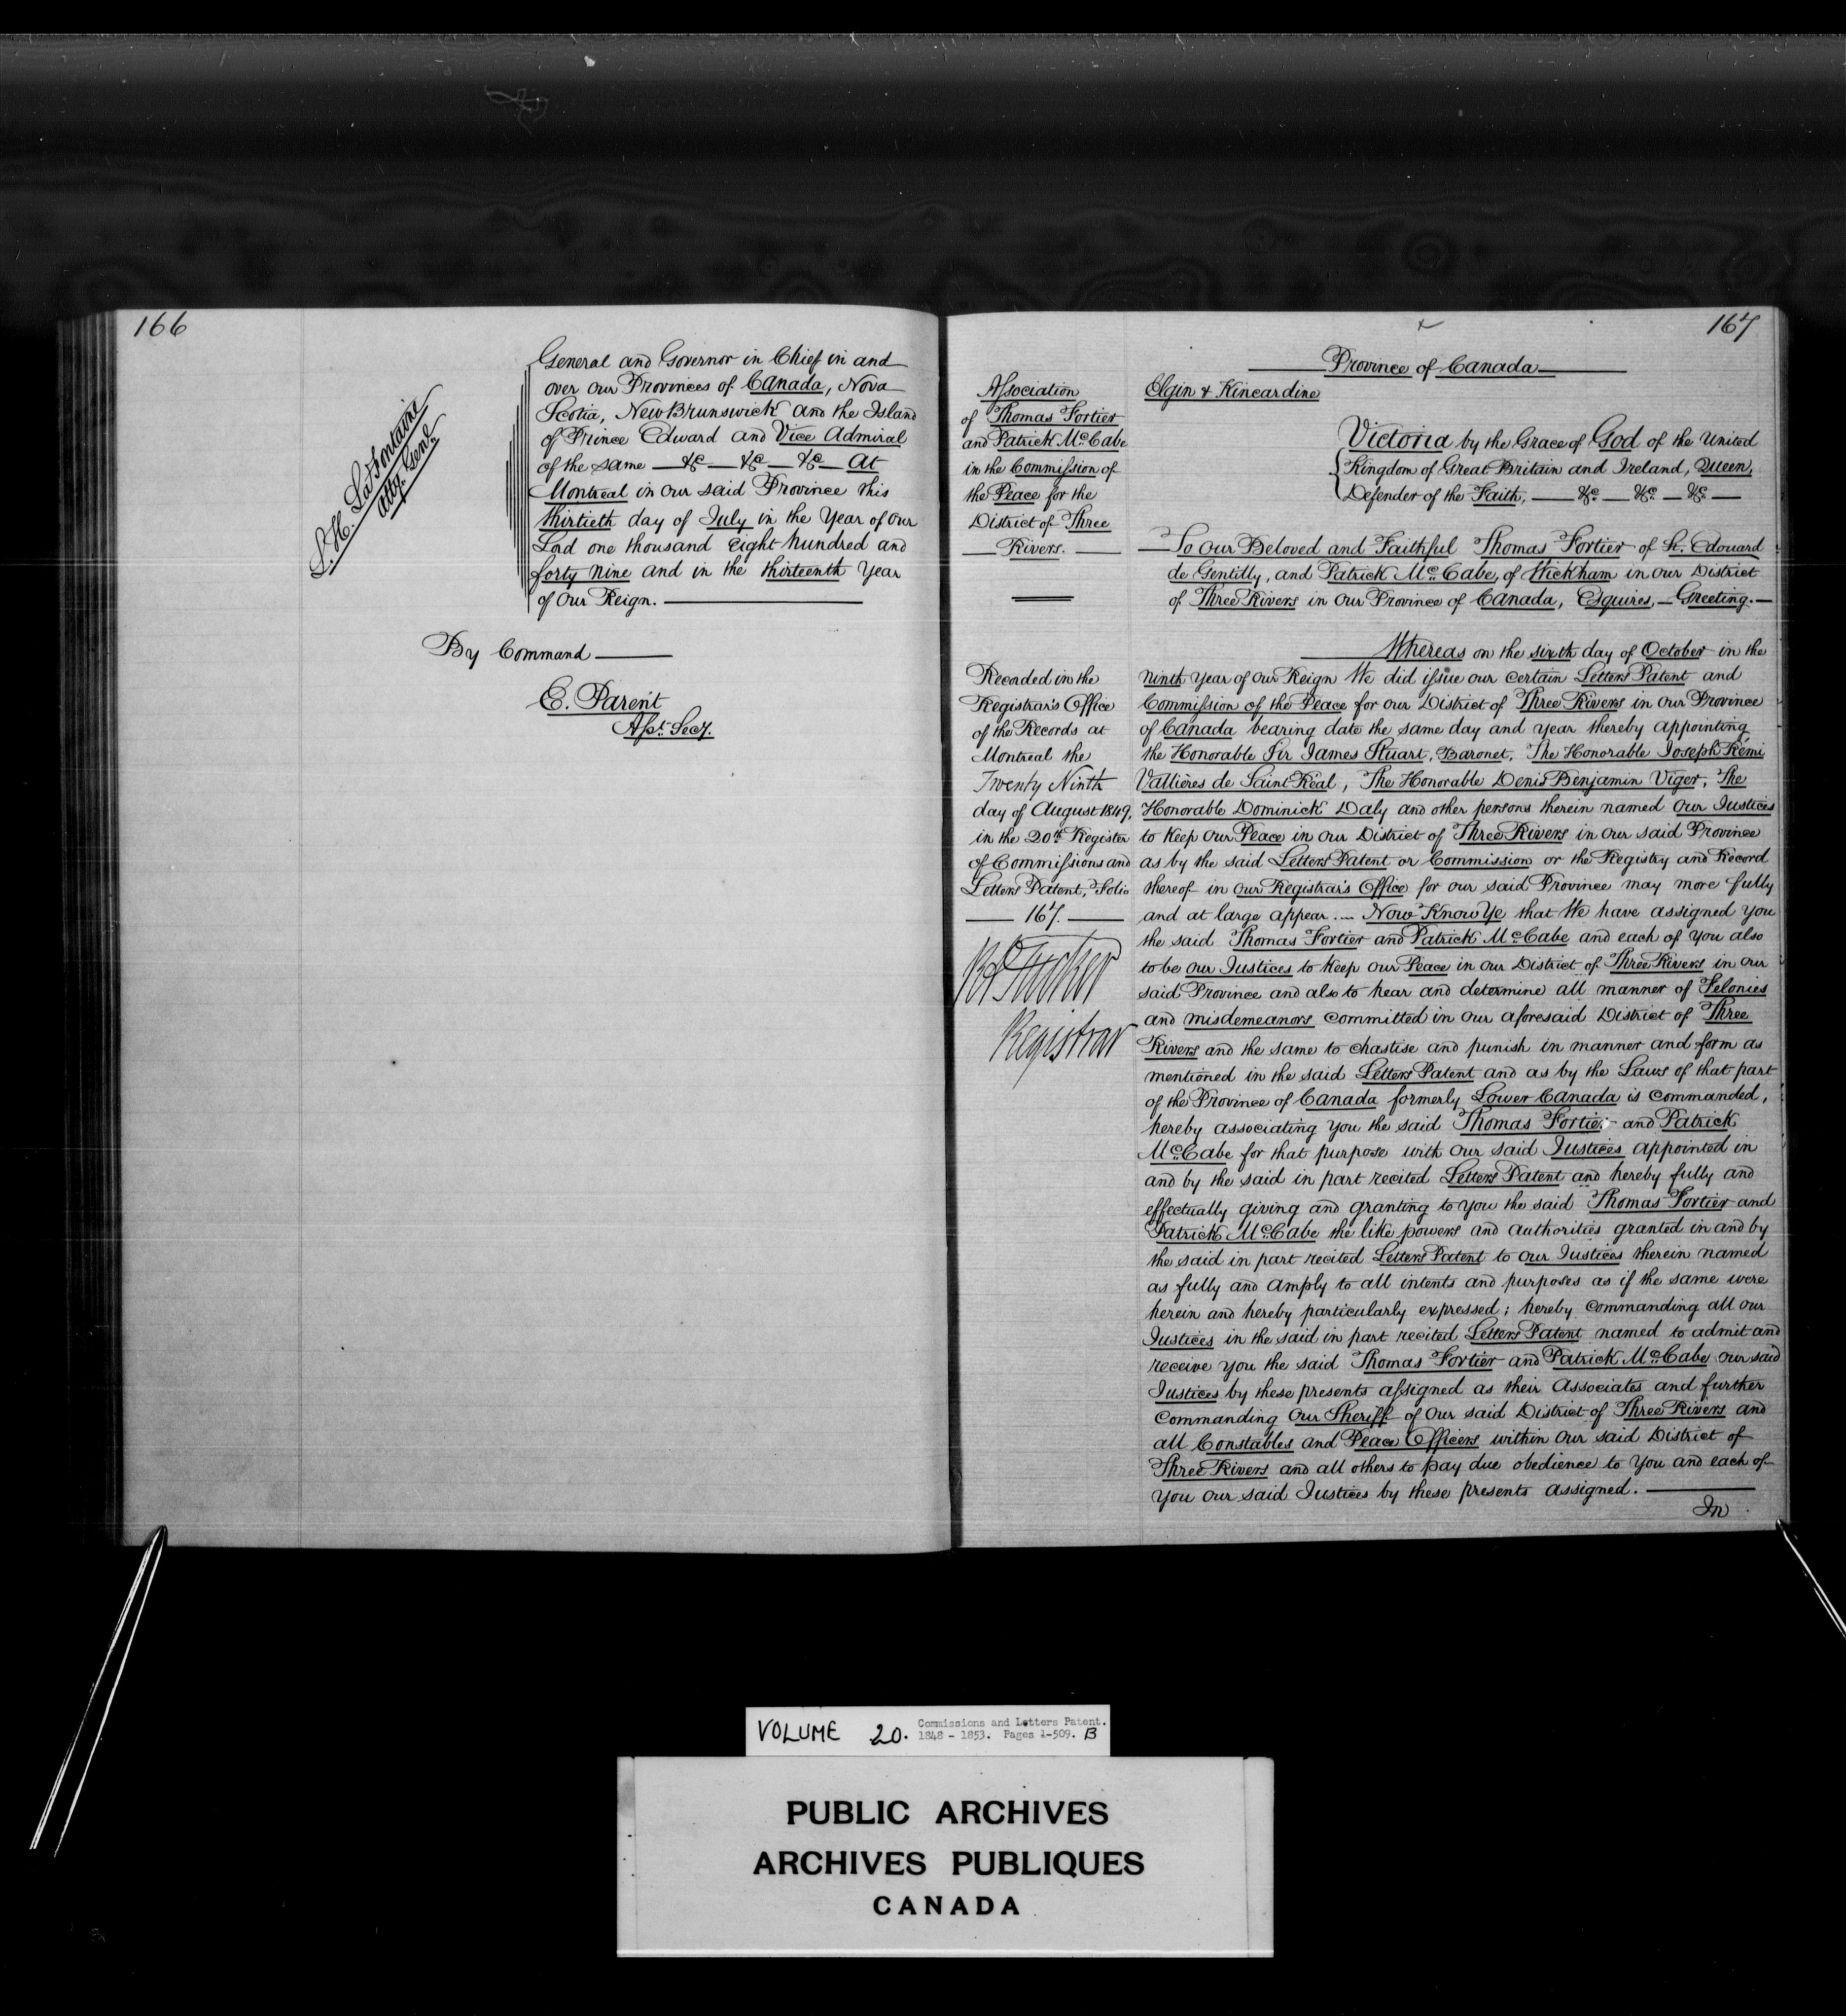 166
General and Governor in Chief in and
over our Provinces of Canada, Nova
Scotia, New Brunswick and the Island
of Prince Edward and Vice Admiral
of the same — &c — &c — &c — At
Montreal in our said Province this
thirtieth day of July in the Year of our
Lord one thousand Eight hundred and
forty nine and in the thirteenth Year
of Our Reign.
L. H. LaFontaine
Atty. Genl.
By Command
E. Parent
Asst. Secy.
167
Province of Canada
Association
of Thomas Fortier
and Patrick McCabe
in the Commission of
the Peace for the
District of Three
Rivers.
Recorded in the
Registrar's Office
of the Records at
Montreal the
Twenty Ninth
day of August 1849,
in the 20th Register
of Commissions and
Letters Patent, Folio
167.
Tucker
Registrar
Elgin & Kincardine
Victoria by the Grace of God of the United
Kingdom of Great Britain and Ireland, Queen,
Defender of the Faith, — &c — &c — &c —
To Our Beloved and Faithful Thomas Fortier of St. Edouard
de Gentilly, and Patrick McCabe, of Wickham in our District
of Three Rivers in Our Province of Canada, Esquires, — Greeting. —
Whereas on the sixth day of October in the
Ninth Year of Our Reign We did issue our certain Letters Patent and
Commission of the Peace for our District of Three Rivers in our Province
of Canada bearing date the same day and year thereby appointing
the Honorable Sir James Stuart, Baronet, The Honorable Joseph Rémi
Vallières de Saint Réal, The Honorable Denis Benjamin Viger, The
Honorable Dominick Daly and other persons therein named Our Justices
to Keep our Peace in our District of Three Rivers in our said Province
as by the said Letters Patent or Commission or the Registry and Record
thereof in Our Registrar's Office for our said Province may more fully
and at large appear.... Now Know Ye that We have assigned you
the said Thomas Fortier and Patrick McCabe and each of you also
to be our Justices to Keep our Peace in our District of Three Rivers in our
said Province and also to hear and determine all manner of Felonies
and misdemeanors committed in our aforesaid District of Three
Rivers and the same to chastise and punish in manner and form as
mentioned in the said Letters Patent and as by the Laws of that part
of the Province of Canada formerly Lower Canada is commanded,
hereby associating you the said Thomas Fortier and Patrick
McCabe for that purpose with our said Justices appointed in
and by the said in part recited Letters Patent and hereby fully and
effectually giving and granting to you the said Thomas Fortier and
Patrick McCabe the like powers and authorities granted in and by
the said in part recited Letters Patent to our Justices therein named
as fully and amply to all intents and purposes as if the same were
herein and hereby particularly expressed; hereby commanding all our
Justices in the said in part recited Letters Patent named to admit and
receive you the said Thomas Fortier and Patrick McCabe our said
Justices by these presents assigned as their Associates and further
Commanding Our Sheriff of our said District of Three Rivers and
all Constables and Peace Officers within our said District of
Three Rivers and all others to pay due obedience to You and each of
you our said Justices by these presents assigned.
In
VOLUME 20. Commissions and Letters Patent.
1848 - 1853. Pages 1-509. B
PUBLIC ARCHIVES
ARCHIVES PUBLIQUES
CANADA